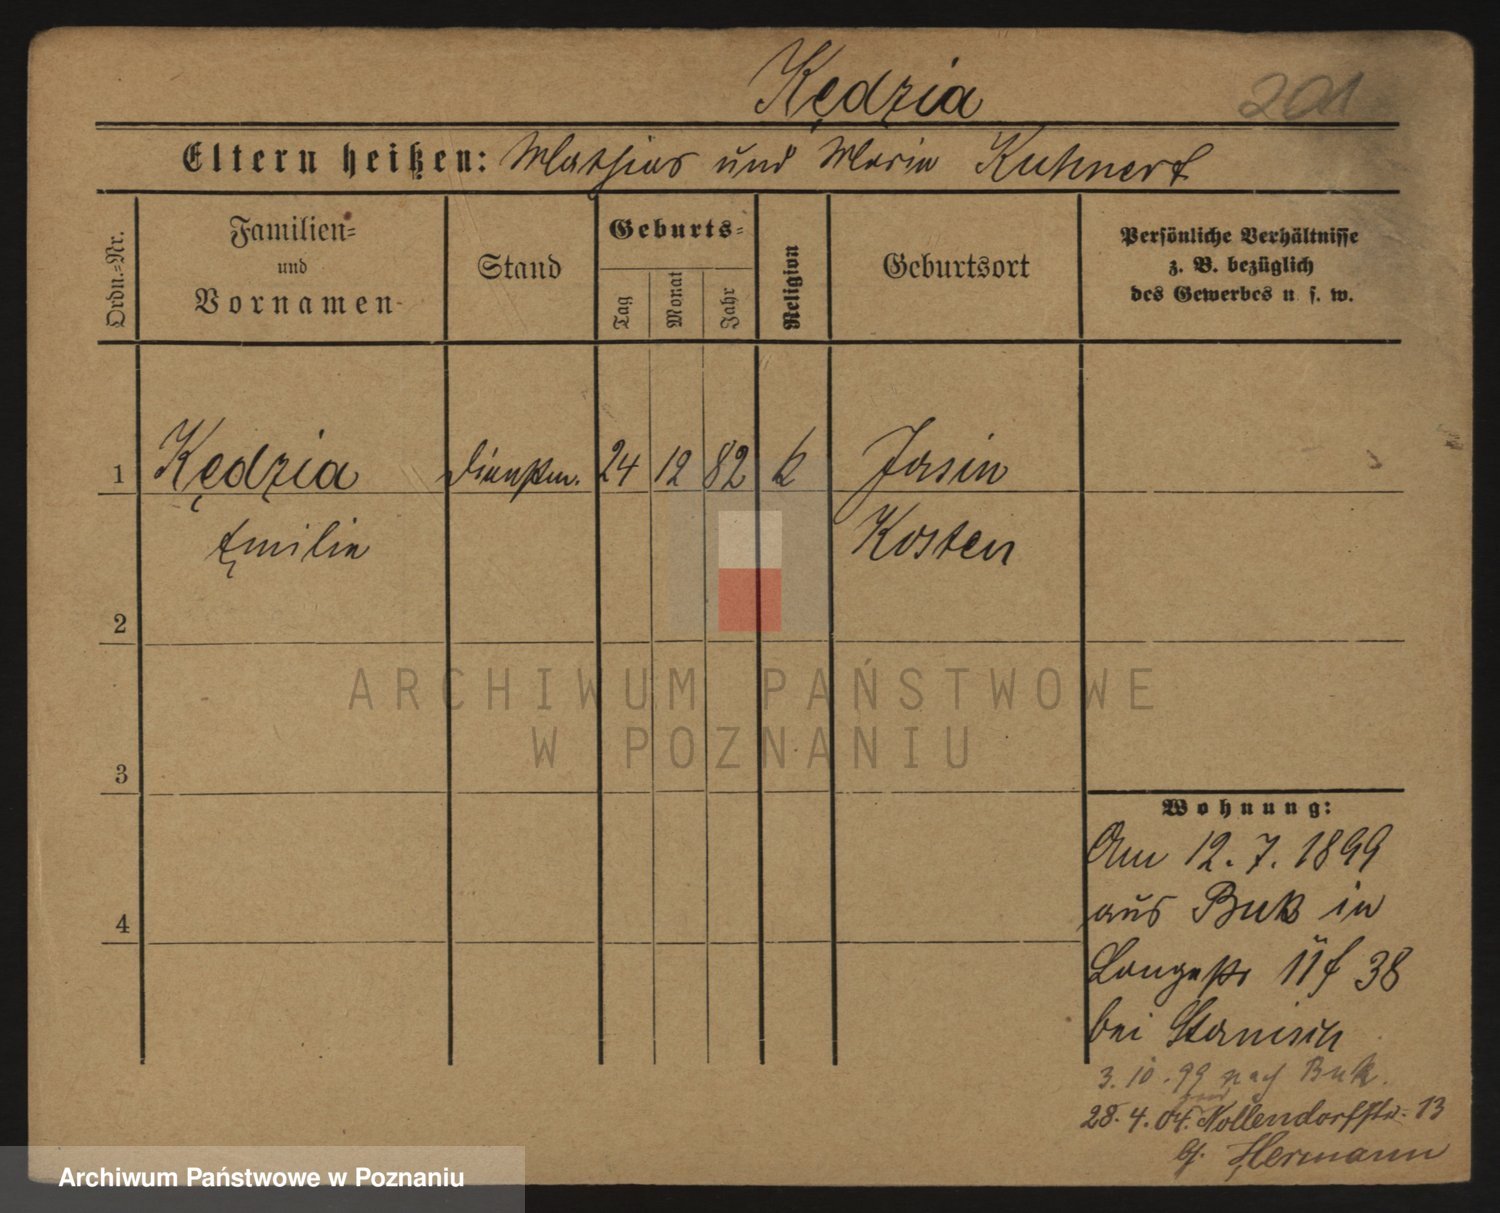 Kędzia
201
Eltern heißen: Mathias und Maria Kuhnert
Ordn.=Nr.
Familien=
und
Vornamen
Stand
Geburts=
Tag
Monat
Jahr
Religion
Geburtsort
Persönliche Verhältnisse
z. B. bezüglich
des Gewerbes u. s. w.
1 Kędzia Dienstm. 24 12 82 k Jasin
Emilie Kosten
2
3
4
Wohnung:
Am 12. 7. 1899
aus Buk in
Langestr 11 38
bei
3. 10. 99 nach Buk.
28. 4. 04. Nollendorfstr. 13
b/. Hermann
ARCHIWUM PAŃSTWOWE
W POZNANIU
Archiwum Państwowe w Poznaniu